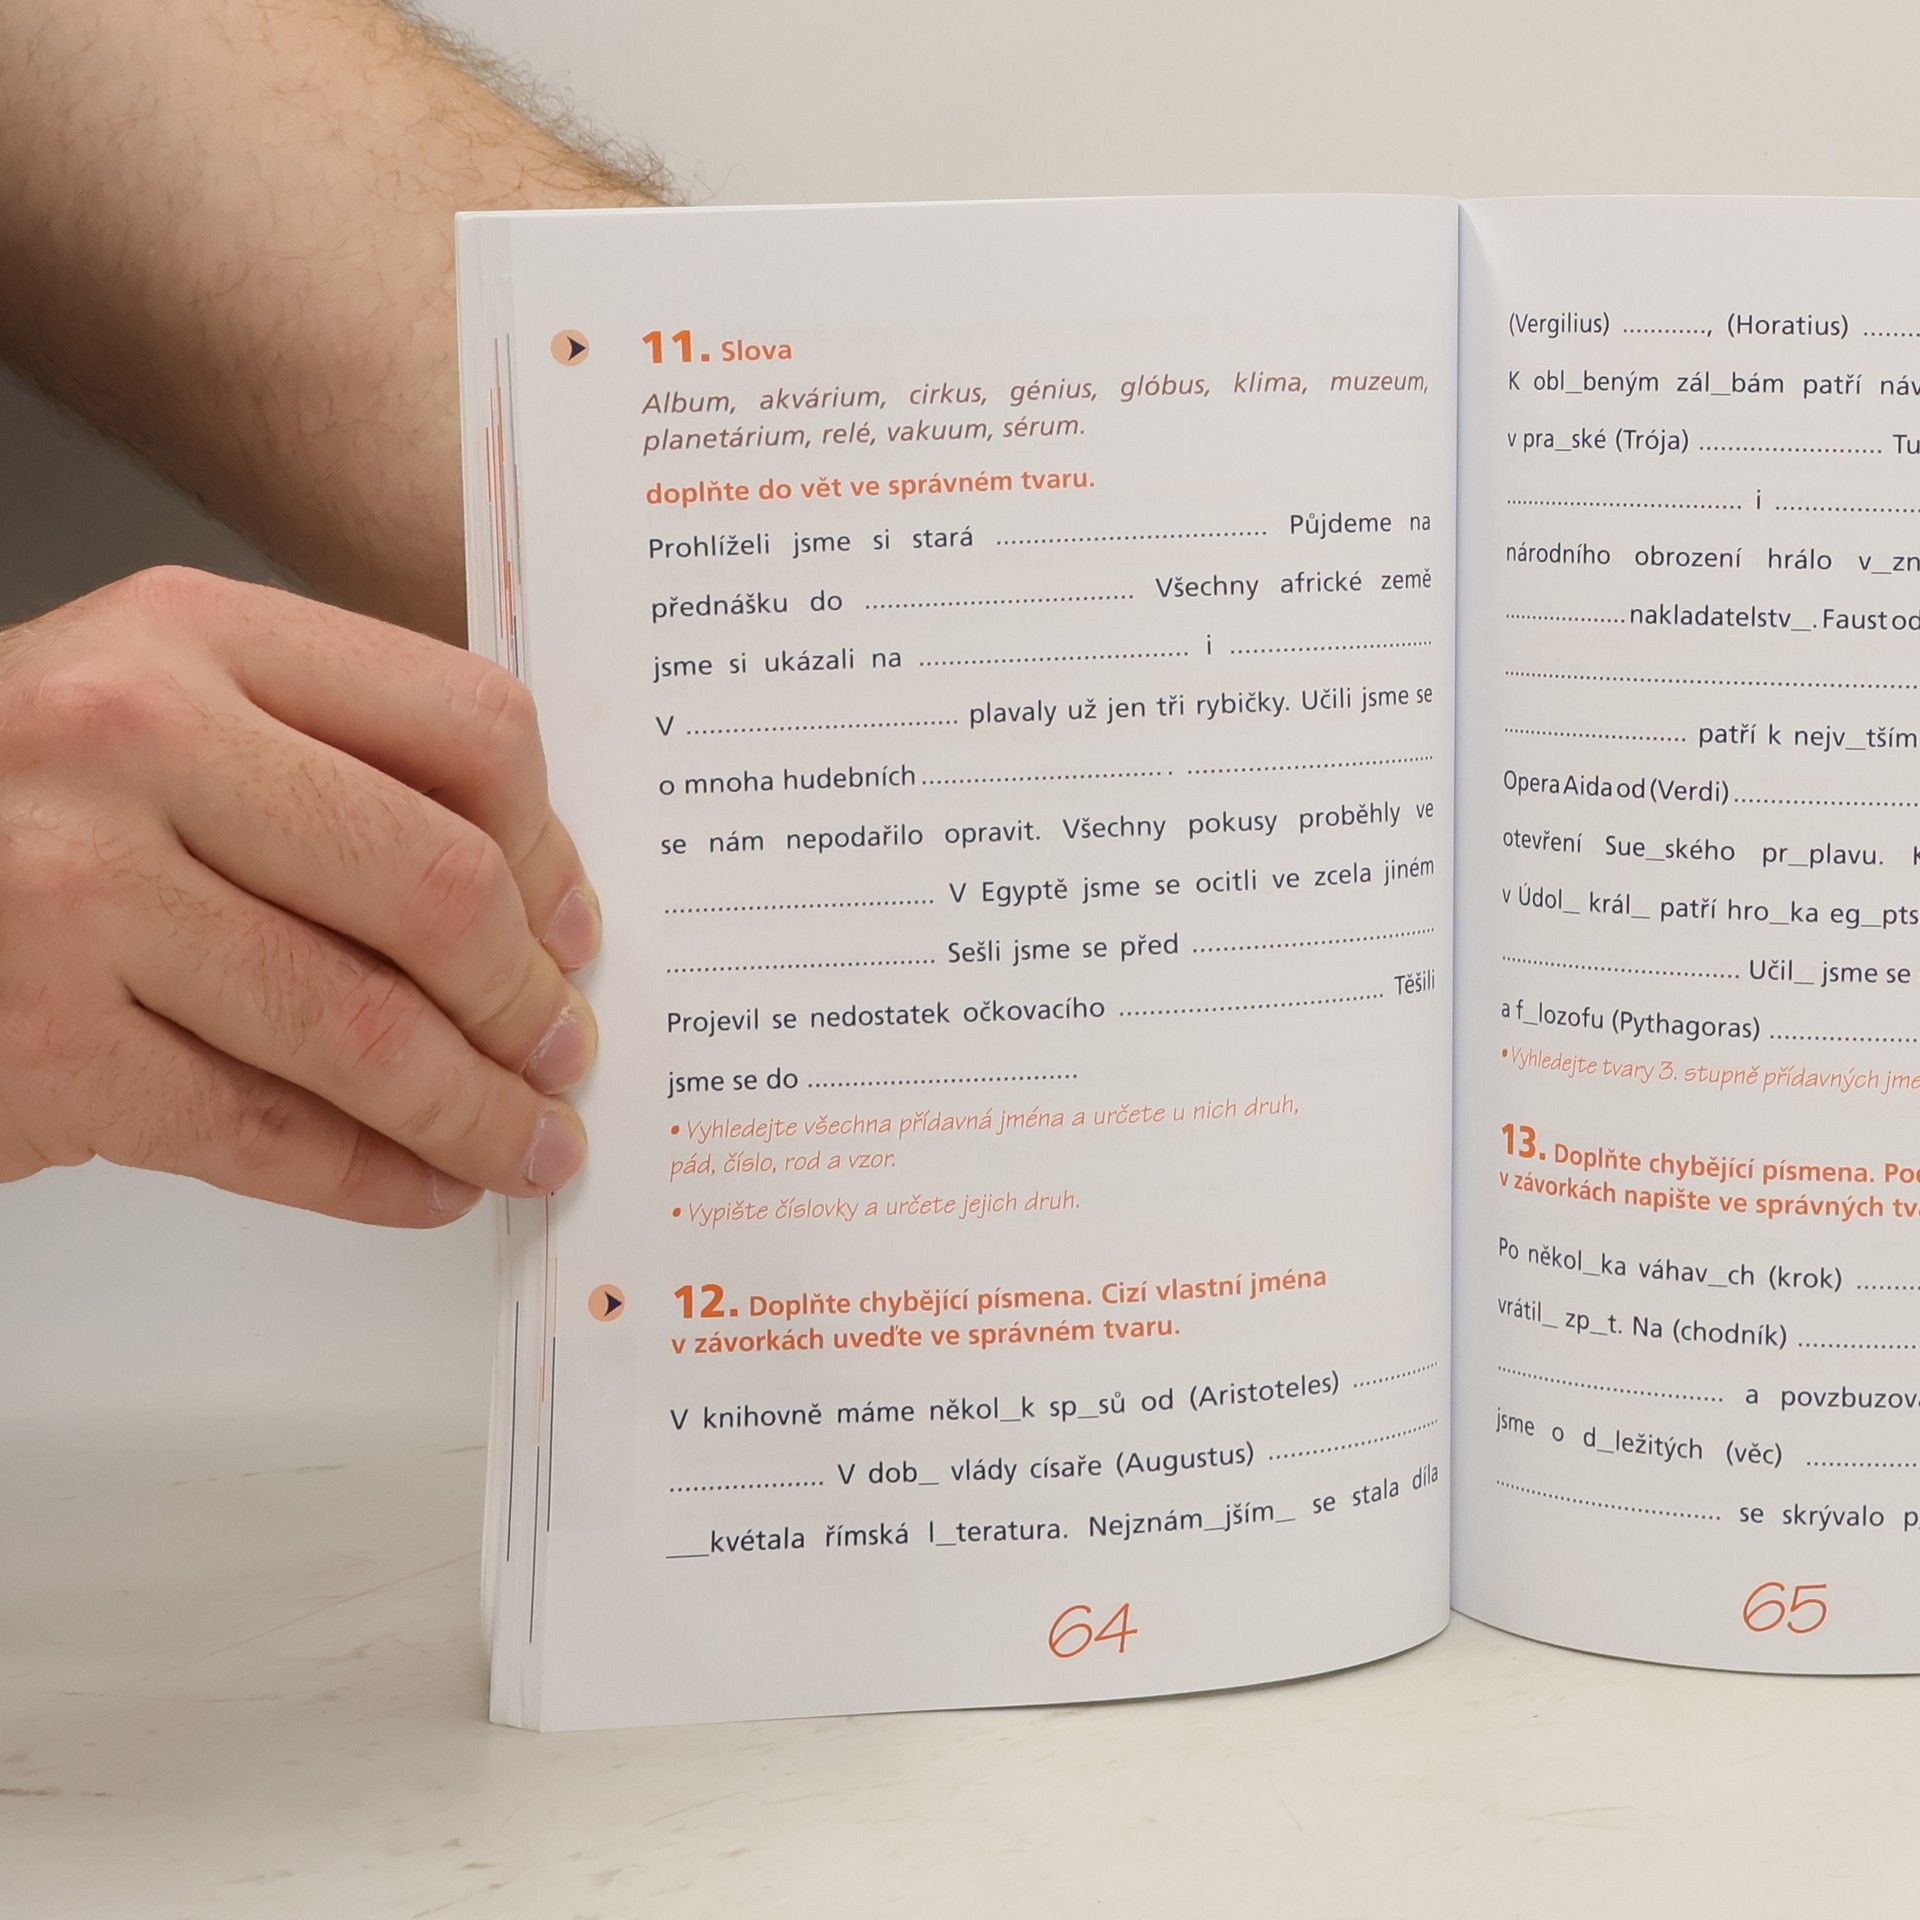 11. Slova
Album, akvárium, cirkus, génius, glóbus, klima, muzeum,
planetárium, relé, vakuum, sérum.
doplňte do vět ve správném tvaru.
Prohlíželi jsme si stará .................................. Půjdeme na
přednášku do .................................. Všechny africké země
jsme si ukázali na .................................. i ..........................
V .................................. plavaly už jen tři rybičky. Učili jsme se
o mnoha hudebních ............................... . ...............................
se nám nepodařilo opravit. Všechny pokusy proběhly ve
.................................. V Egyptě jsme se ocitli ve zcela jiném
.................................. Sešli jsme se před ..............................
Projevil se nedostatek očkovacího .................................. Těšili
jsme se do ..................................
• Vyhledejte všechna přídavná jména a určete u nich druh,
pád, číslo, rod a vzor.
• Vypište číslovky a určete jejich druh.
12. Doplňte chybějící písmena. Cizí vlastní jména
v závorkách uveďte ve správném tvaru.
V knihovně máme někol_k sp_sů od (Aristoteles) ...........
.................... V dob_ vlády císaře (Augustus) ......................
___kvétala římská l_teratura. Nejznám_jším_ se stala díla
64
(Vergilius) ............, (Horatius) .......
K obl_beným zál_bám patří náv
v pra_ské (Trója) ........................ Tu
.............................. i ...................
národního obrození hrálo v_zn
.................... nakladatelstv_. Faust od
.....................................................
........................ patří k nejv_tším
Opera Aida od (Verdi) ........................
otevření Sue_ského pr_plavu. K
v Údol_ král_ patří hro_ka eg_pts
.............................. Učil_ jsme se
a f_lozofu (Pythagoras) ...................
• Vyhledejte tvary 3. stupně přídavných jme
13. Doplňte chybějící písmena. Poc
v závorkách napište ve správných tva
Po někol_ka váhav_ch (krok) ........
vrátil_ zp_t. Na (chodník) ................
.............................. a povzbuzova
jsme o d_ležitých (věc) ...............
.............................. se skrývalo p
65